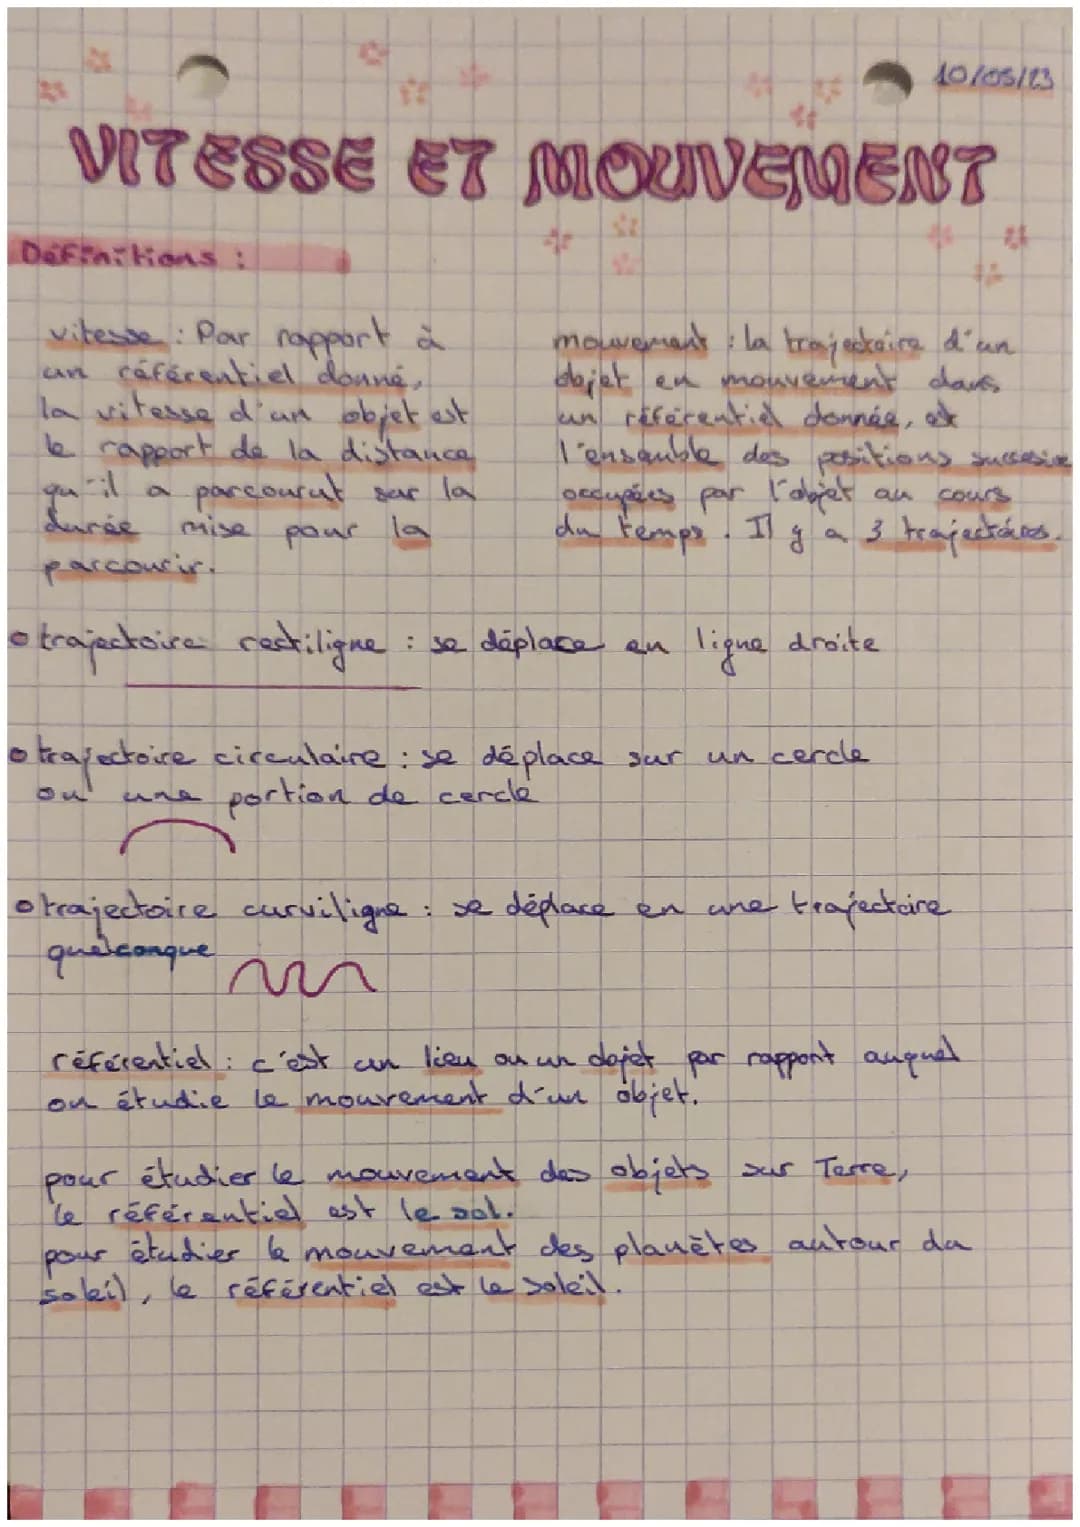 10/05/23
VITESSE ET MOUVEMENT
Définitions :
vitesse : Par rapport à
un référentiel donné,
la vitesse d'un objet est
le rapport de la distance
qu'il a parcourut sur la
durée mise pour la
parcourir.
mouvement : la trajectoire d'un
objet en mouvement dans
un référentiel donnée, est
l'ensemble des positions succesive
occupées par l'objet au cours
du temps. Il y a 3 trajectoires.
trajectoire rectiligne : se déplace en ligne droite
trajectoire circulaire : se déplace sur un cercle
ou une portion de cercle
trajectoire curviligne : se déplace en une trajectoire
quelconque
référentiel : c'est un lieu ou un objet par rapport auquel
on étudie le mouvement d'un objet.
pour étudier le mouvement des objets sur Terre,
le référentiel est le sol.
pour étudier le mouvement des planètes autour du
soleil, le référentiel est le soleil.